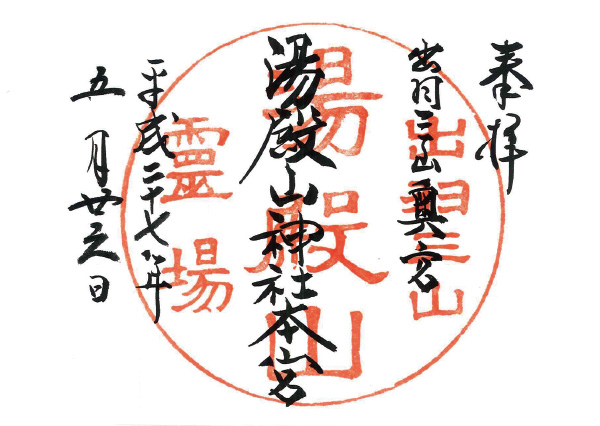 奉拝
出羽三山奥宮
湯殿山神社本宮
平成二十七年
五月廿六日
出羽三山
湯殿山
靈場